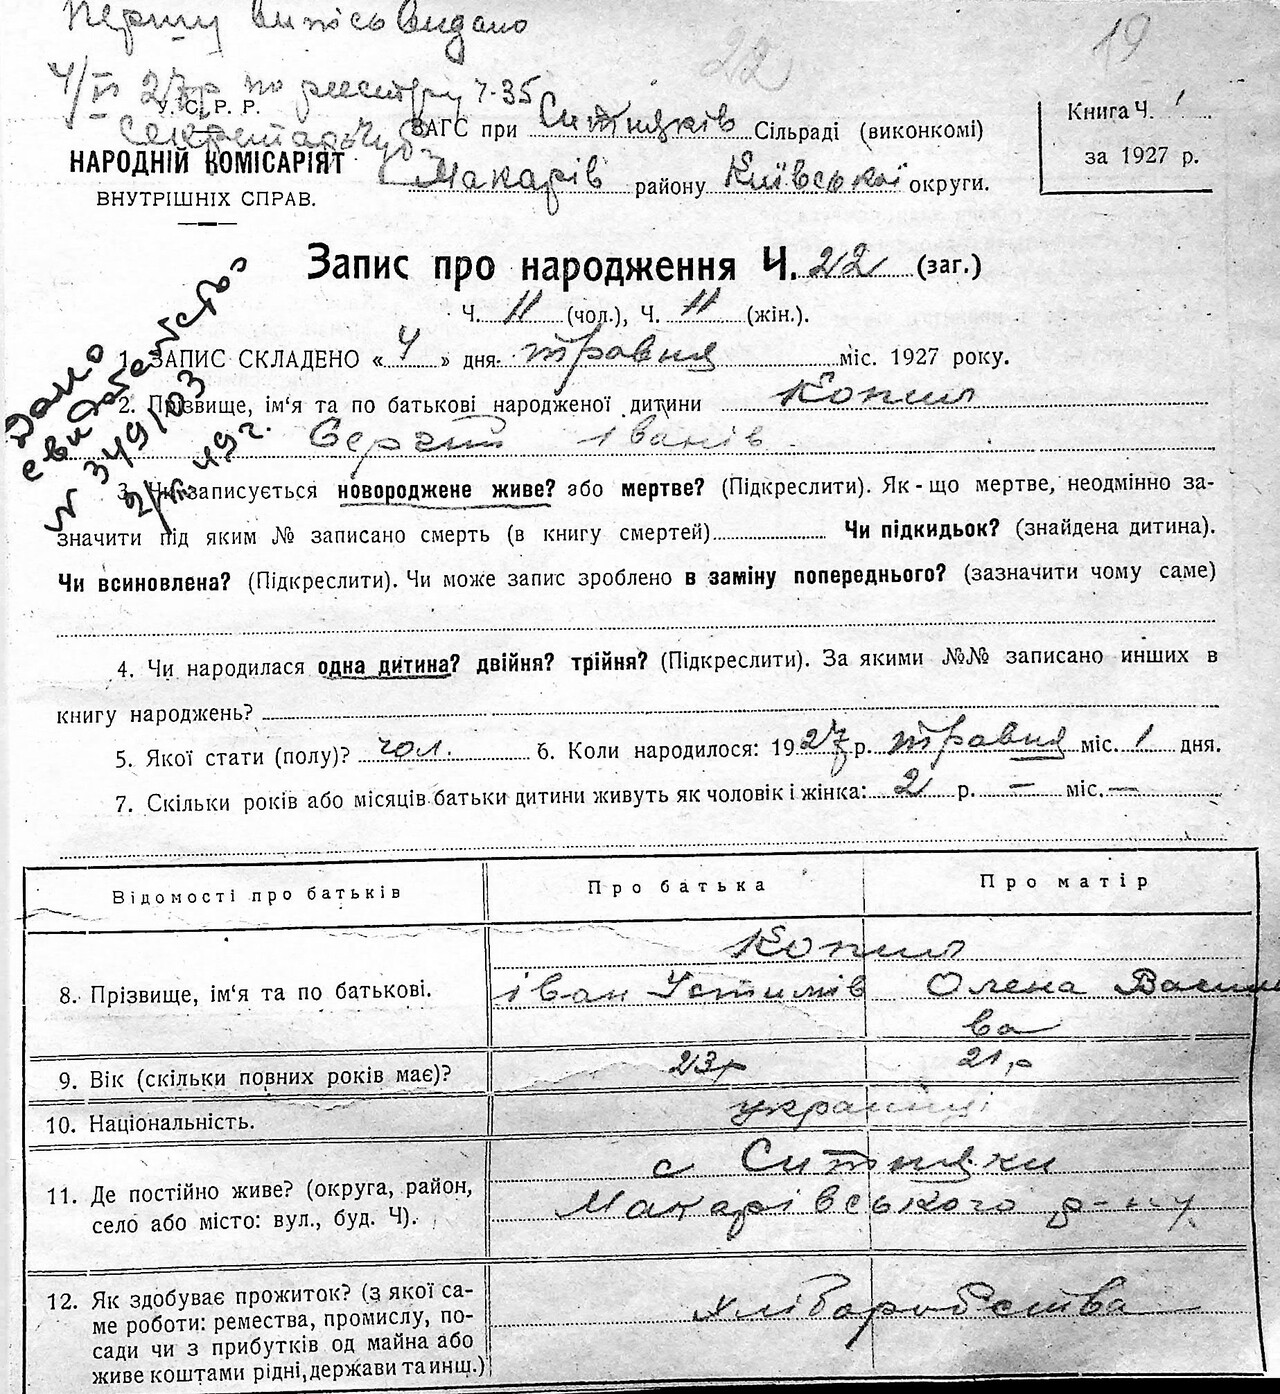 Першу випись видано
22
19
4/V 27р по реєстру ч-35
У. С. Р. Р.
Секретарь
НАРОДНІЙ КОМІСАРІЯТ
ВНУТРІШНІХ СПРАВ.
ЗАГС при Ситняків Сільраді (виконкомі)
Макарів району Київської округи.
Книга Ч. 1
за 1927 р.
Запис про народження Ч. 22 (заг.)
Ч. 11 (чол.), Ч. 11 (жін.).
Дано
свидоцтво
N 349103
49 г.
1. ЗАПИС СКЛАДЕНО « 4 » дня травня міс. 1927 року.
2. Прізвище, ім'я та по батькові народженої дитини Копил
Сергій Іванів
3. Чи записується новороджене живе? або мертве? (Підкреслити). Як-що мертве, неодмінно за-
значити під яким № записано смерть (в книгу смертей) Чи підкидьок? (знайдена дитина).
Чи всиновлена? (Підкреслити). Чи може запис зроблено в заміну попереднього? (зазначити чому саме)
4. Чи народилася одна дитина? двійня? трійня? (Підкреслити). За якими №№ записано инших в
книгу народжень?
5. Якої стати (полу)? чол. 6. Коли народилося: 1927 р. травня міс. 1 дня.
7. Скільки років або місяців батьки дитини живуть як чоловік і жінка: 2 р. — міс. —
Відомості про батьків Про батька Про матір
Копил
8. Прізвище, ім'я та по батькові. Іван Устимів Олена Васили
ва
9. Вік (скільки повних років має)? 23р 21р
10. Національність. українці
11. Де постійно живе? (округа, район,
село або місто: вул., буд. Ч).
с Ситняки
Макарівського р-ну
12. Як здобуває прожиток? (з якої са-
ме роботи: ремества, промислу, по-
сади чи з прибутків од майна або
живе коштами рідні, держави та инш.)
хліборобства